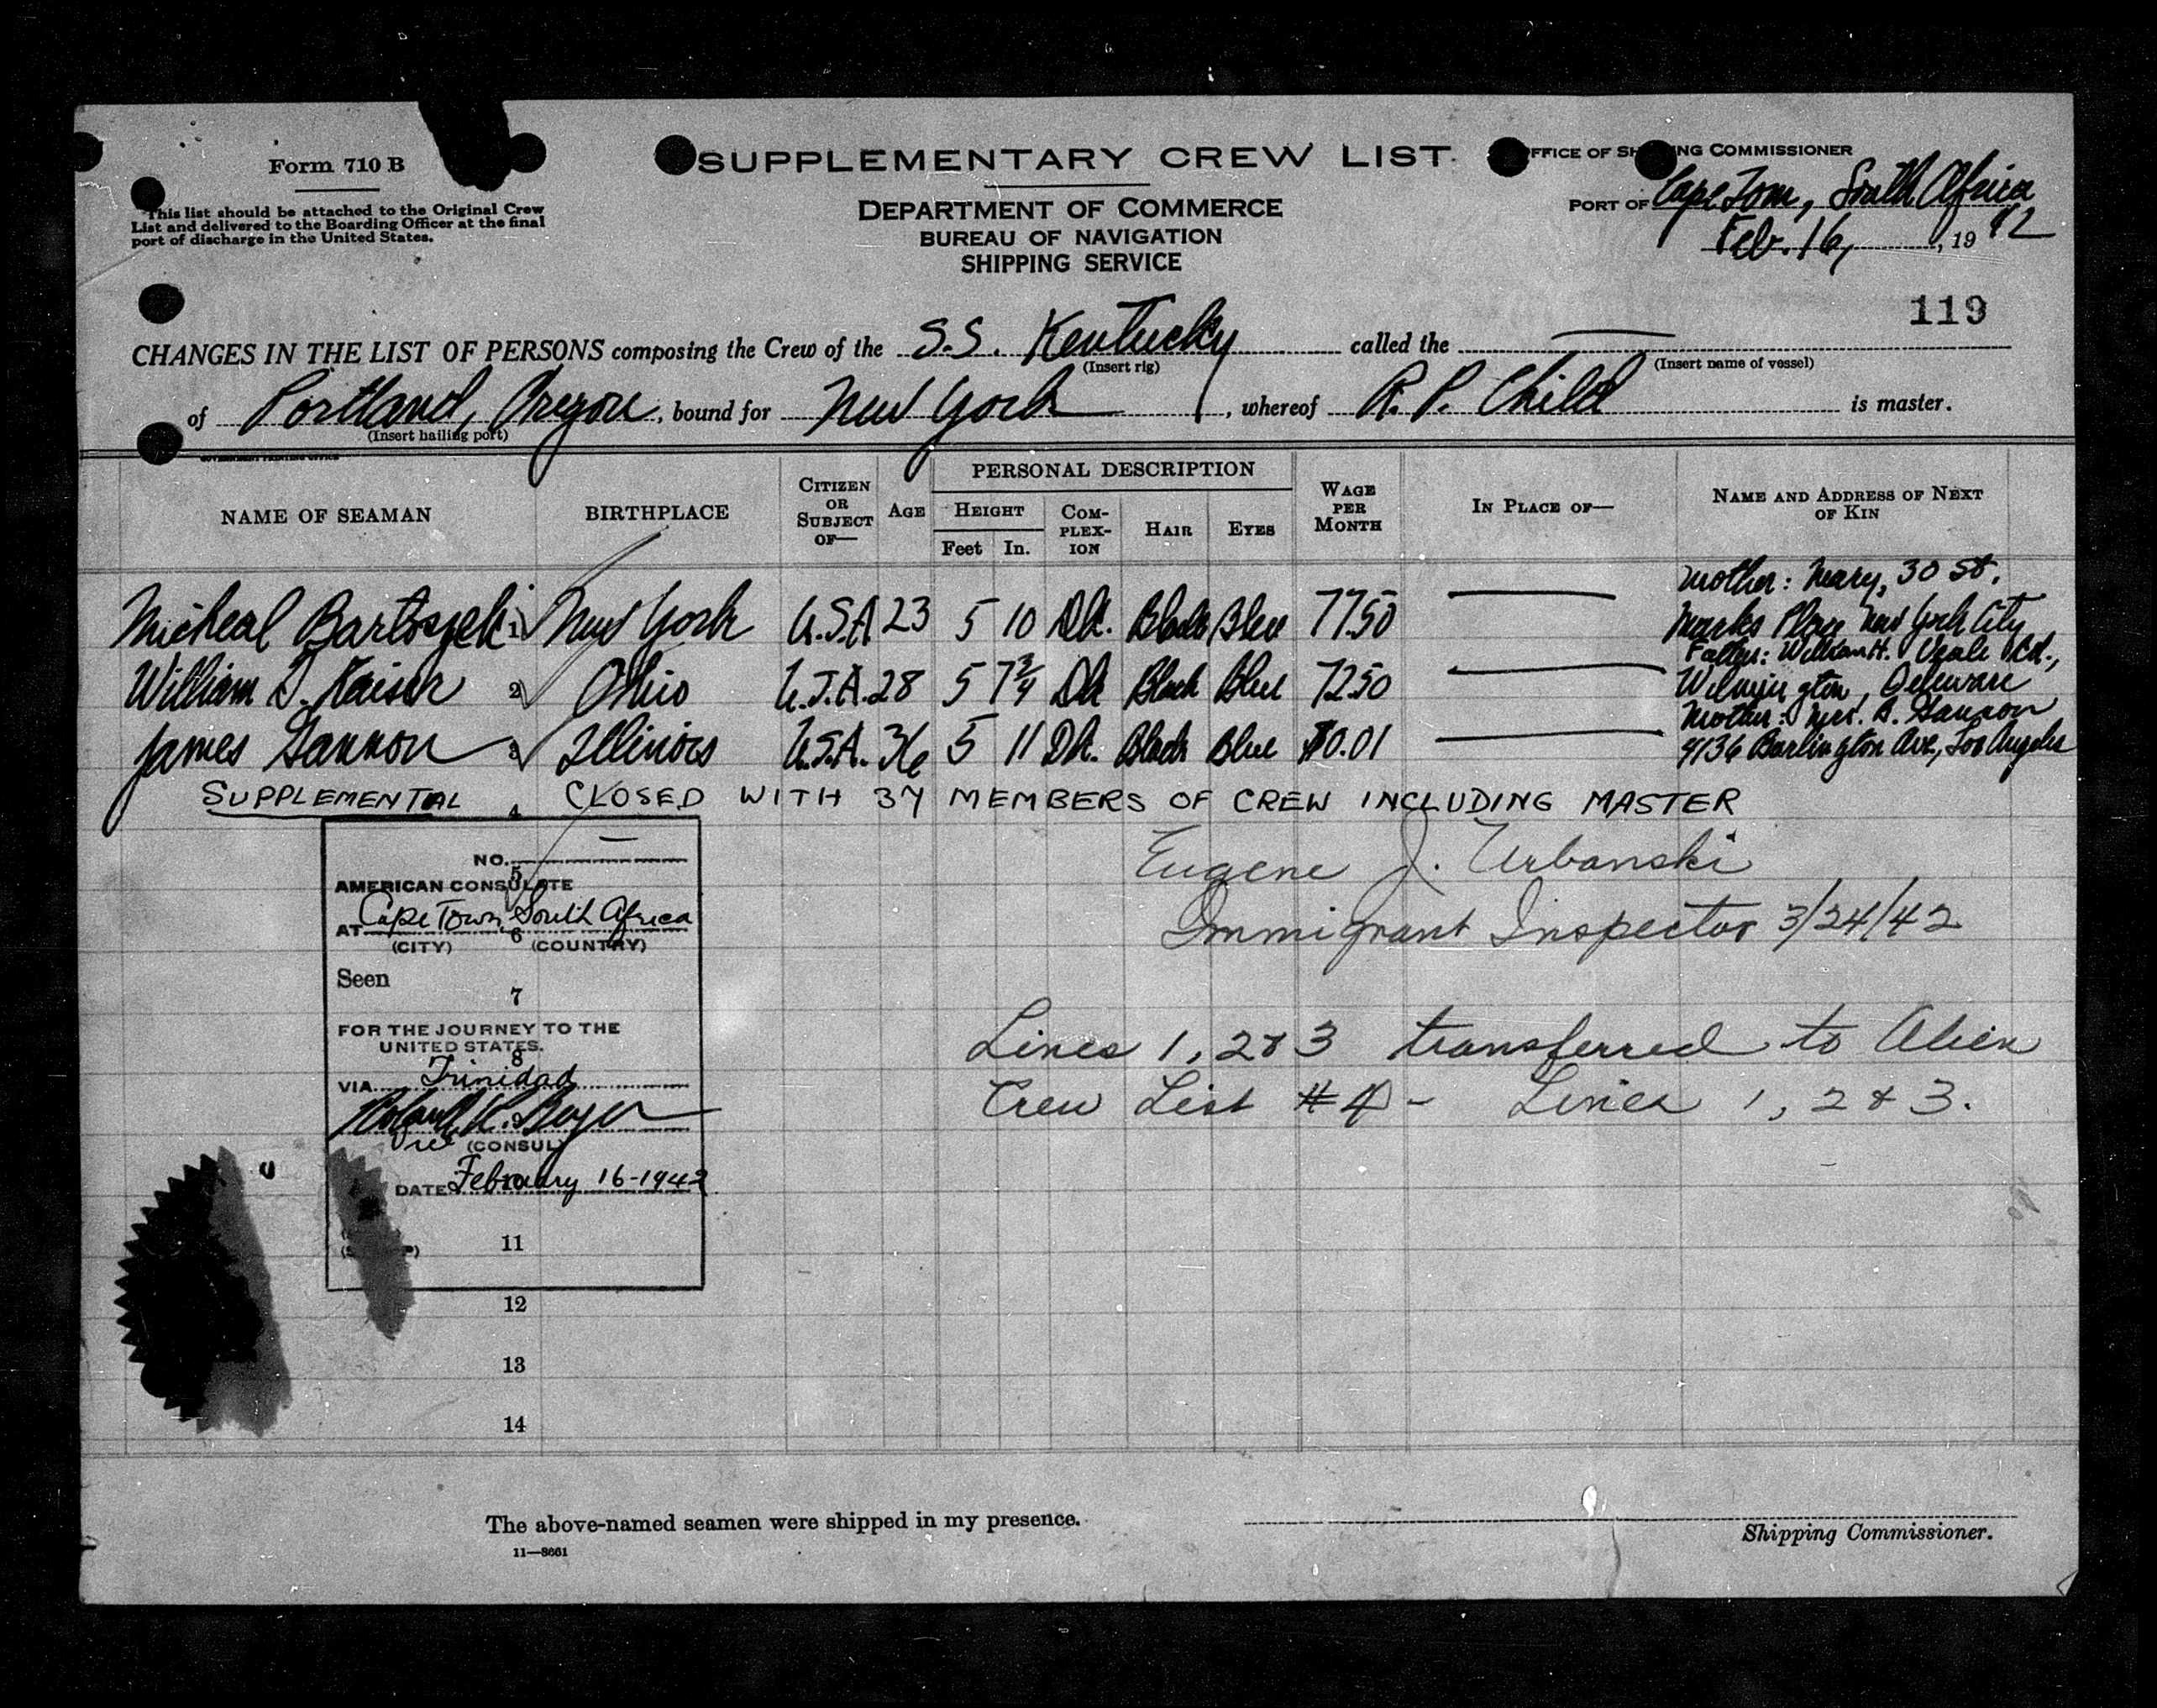 Form 710 B
This list should be attached to the Original Crew
List and delivered to the Boarding Officer at the final
port of discharge in the United States.
SUPPLEMENTARY CREW LIST
DEPARTMENT OF COMMERCE
BUREAU OF NAVIGATION
SHIPPING SERVICE
OFFICE OF SHIPPING COMMISSIONER
PORT OF Cape Town, South Africa
Feb. 16, , 1942
119
CHANGES IN THE LIST OF PERSONS composing the Crew of the S.S. Kentucky called the
(Insert rig) (Insert name of vessel)
of Portland, Oregon, bound for New York, whereof R. P. Child is master.
(Insert hailing port)
GOVERNMENT PRINTING OFFICE
NAME OF SEAMAN BIRTHPLACE CITIZEN OR SUBJECT OF— AGE PERSONAL DESCRIPTION WAGE PER MONTH IN PLACE OF— NAME AND ADDRESS OF NEXT OF KIN
HEIGHT COMPLEXION HAIR EYES
Feet In.
Mother: Mary, 30 St.
Micheal Bartoszek 1 New York U.S.A 23 5 10 Dk. Black Blue 77.50 Marks Place New York City
Father: William H. Veale Rd.,
William T. Kaiser 2 Ohio U.S.A. 28 5 7 3/4 Dk Black Blue 72.50 Wilmington, Deleware
Mother: Mrs. A. Gannon
James Gannon 3 Illinois U.S.A. 36 5 11 Dk. Black Blue $0.01 4136 Burlington Ave, Los Angeles
SUPPLEMENTAL 4 CLOSED WITH 37 MEMBERS OF CREW INCLUDING MASTER
Eugene J. Urbanski
Immigrant Inspector 3/24/42
NO.
5
AMERICAN CONSULATE
AT Cape Town, South Africa
6
(CITY) (COUNTRY)
Seen
7
FOR THE JOURNEY TO THE
UNITED STATES.
8
VIA Trinidad
Vice (CONSUL)
DATE February 16-1942
Lines 1, 2 & 3 transferred to Alien
Crew List #4 - Lines 1, 2 & 3.
11
12
13
14
The above-named seamen were shipped in my presence.
Shipping Commissioner.
11—8661